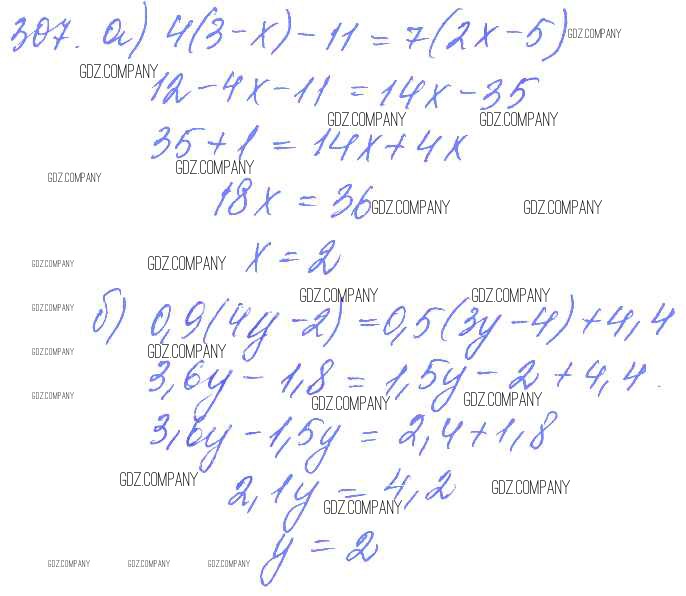 307. а) 4(3-x)-11=7(2x-5) GDZ.COMPANY
GDZ.COMPANY
12-4x-11=14x-35
GDZ.COMPANY GDZ.COMPANY
35+1=14x+4x
GDZ.COMPANY GDZ.COMPANY
18x=36 GDZ.COMPANY GDZ.COMPANY
GDZ.COMPANY GDZ.COMPANY x=2
GDZ.COMPANY GDZ.COMPANY
GDZ.COMPANY б) 0,9(4y-2)=0,5(3y-4)+4,4
GDZ.COMPANY GDZ.COMPANY
3,6y-1,8=1,5y-2+4,4.
GDZ.COMPANY GDZ.COMPANY GDZ.COMPANY
3,6y-1,5y=2,4+1,8
GDZ.COMPANY 2,1y=4,2 GDZ.COMPANY
GDZ.COMPANY
y=2
GDZ.COMPANY GDZ.COMPANY GDZ.COMPANY